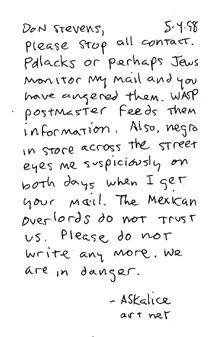 Don Stevens, 5.4.98
Please stop all contact.
Polacks or perhaps Jews
monitor my mail and you
have angered them. WASP
postmaster feeds them
information. Also, negro
in store across the street
eyes me suspiciously on
both days when I get
your mail. The Mexican
overlords do not trust
us. Please do not
write any more. We
are in danger.
- ASKalice
art net